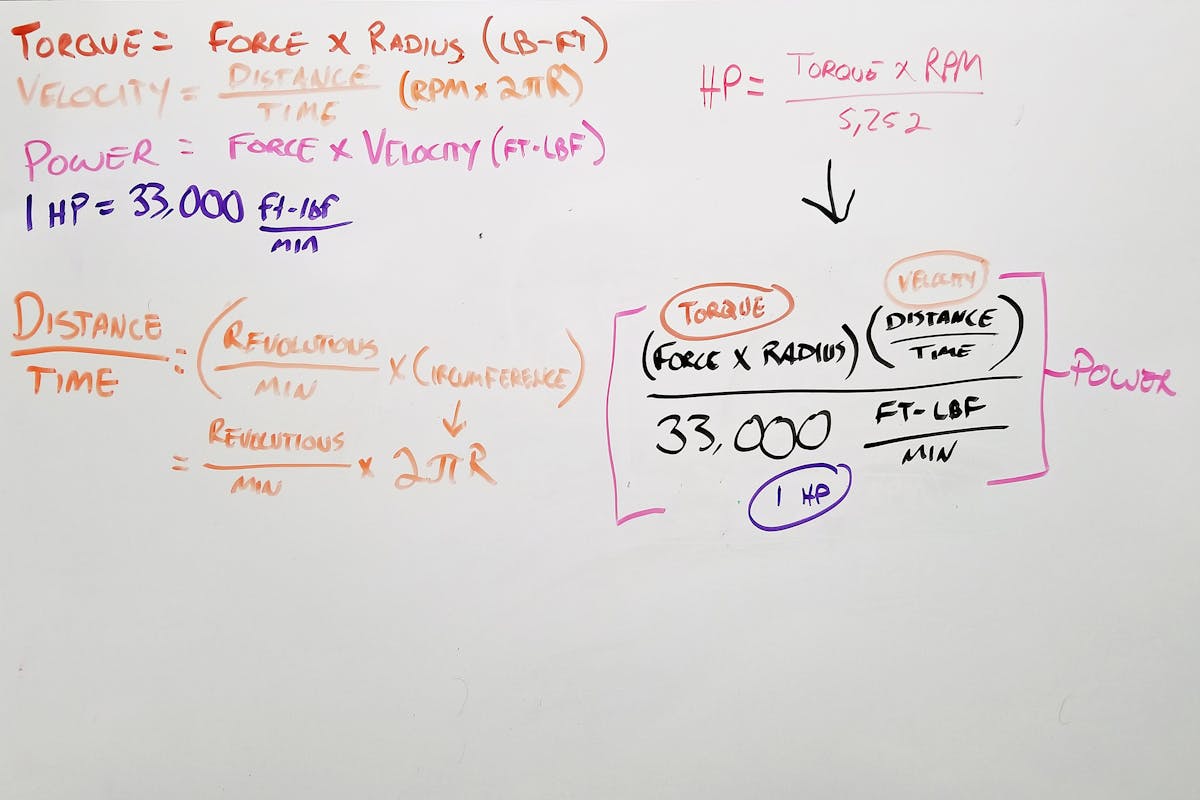 TORQUE = FORCE x RADIUS (LB-FT)
VELOCITY = DISTANCE / TIME (RPM x 2πR)
POWER = FORCE x VELOCITY (FT-LBF)
1 HP = 33,000 ft-lbf / MIN
DISTANCE / TIME = (REVOLUTIONS / MIN x CIRCUMFERENCE)
↓
= REVOLUTIONS / MIN x 2πR
HP = TORQUE x RPM / 5,252
↓
TORQUE VELOCITY
(FORCE x RADIUS) (DISTANCE / TIME)
33,000 FT-LBF / MIN
1 HP
POWER